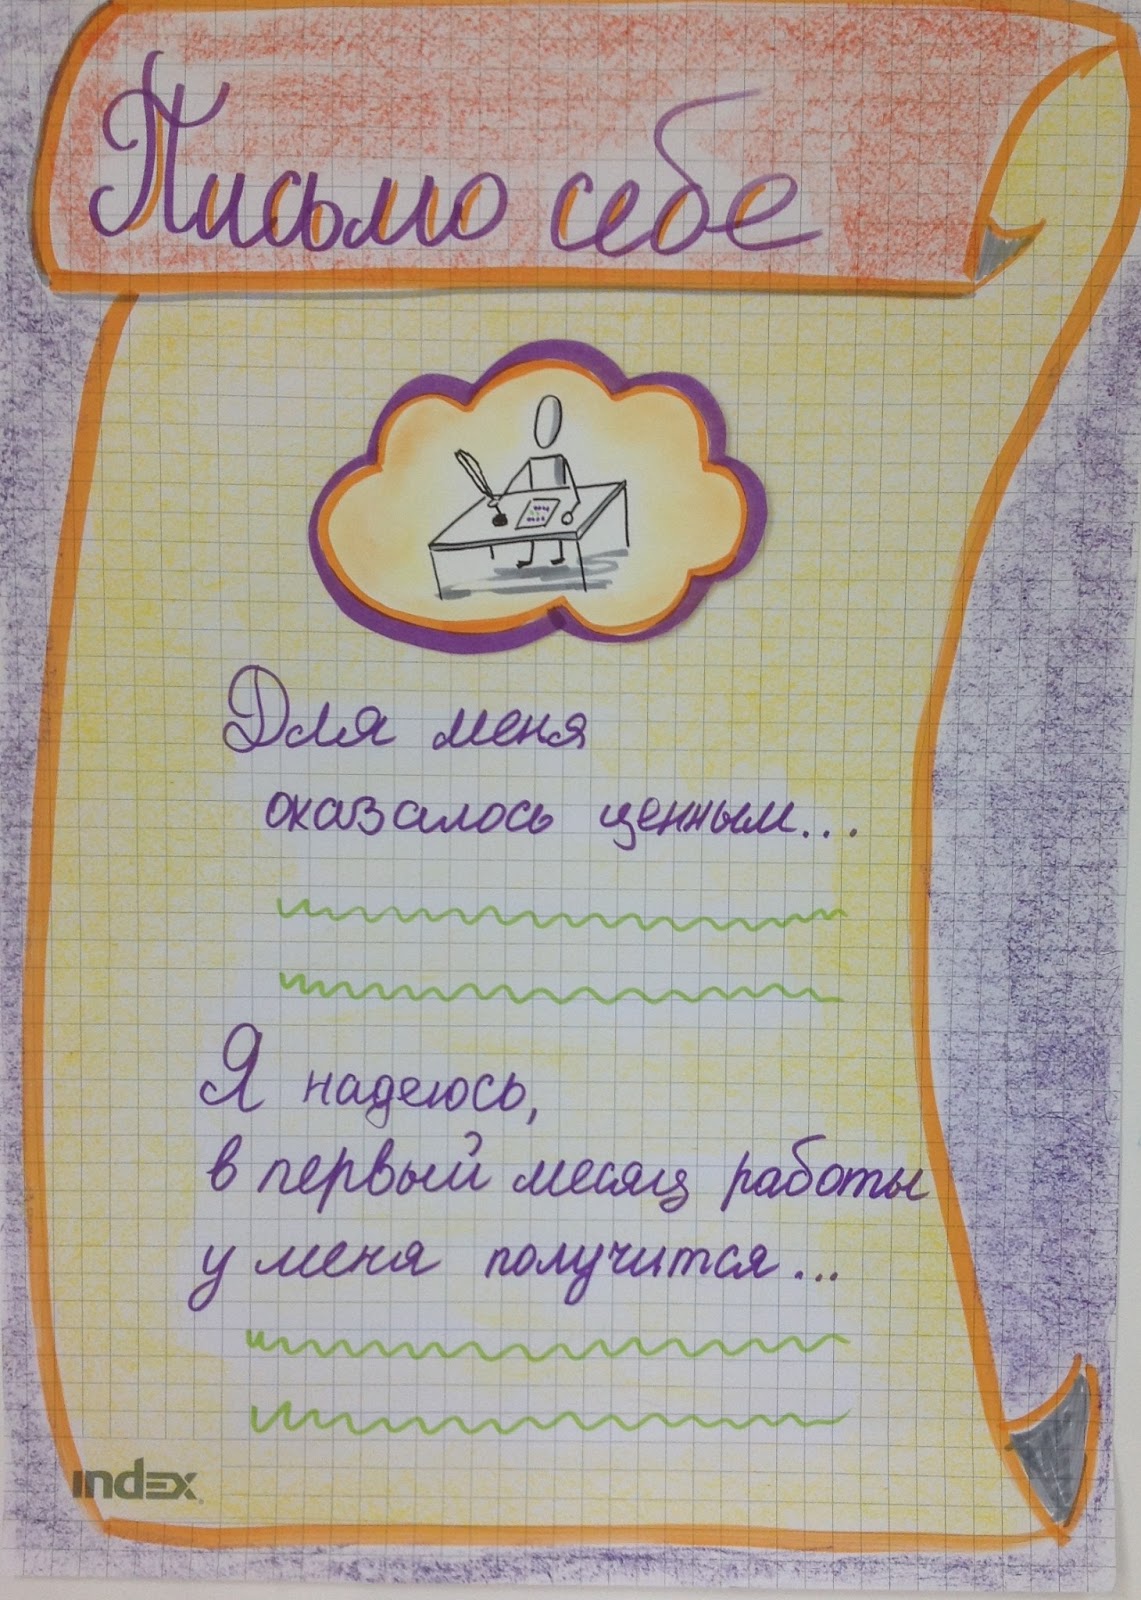 Письмо себе
Для меня
оказалось ценным...
Я надеюсь,
в первый месяц работы
у меня получится...
index